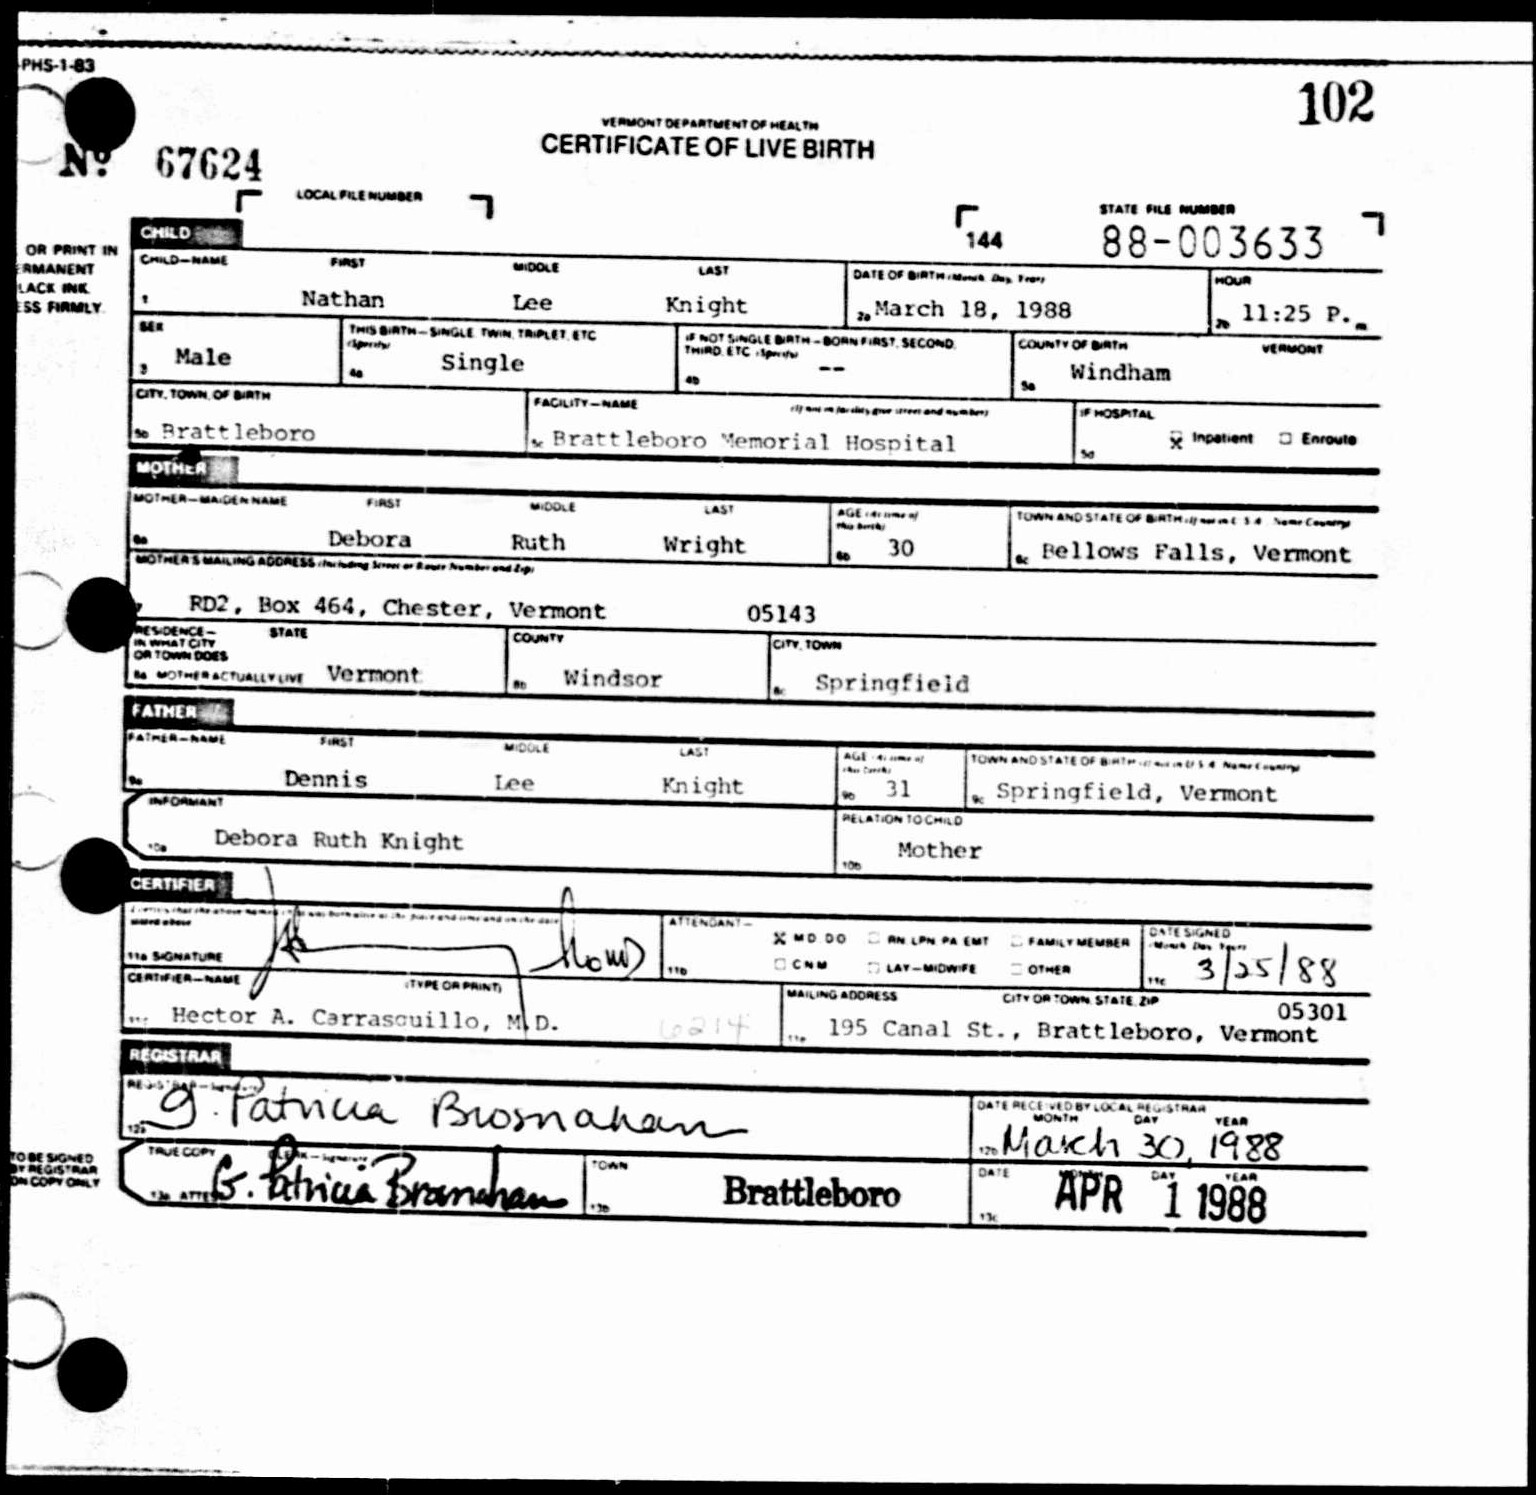 PHS-1-83
102
VERMONT DEPARTMENT OF HEALTH
CERTIFICATE OF LIVE BIRTH
Nº 67624
LOCAL FILE NUMBER
STATE FILE NUMBER
144 88-003633
OR PRINT IN
RMANENT
LACK INK.
ESS FIRMLY.
CHILD
CHILD—NAME FIRST MIDDLE LAST DATE OF BIRTH (Month, Day, Year) HOUR
1 Nathan Lee Knight 2a March 18, 1988 2b 11:25 P. m
SEX THIS BIRTH—SINGLE, TWIN, TRIPLET, ETC. (Specify) IF NOT SINGLE BIRTH—BORN FIRST, SECOND, THIRD, ETC. (Specify) COUNTY OF BIRTH VERMONT
3 Male 4a Single 4b -- 5a Windham
CITY, TOWN, OF BIRTH FACILITY—NAME (If not in facility give street and number) IF HOSPITAL
5b Brattleboro 5c Brattleboro Memorial Hospital 5d X Inpatient Enroute
MOTHER
MOTHER—MAIDEN NAME FIRST MIDDLE LAST AGE (At time of this birth) TOWN AND STATE OF BIRTH (If not in U.S.A., Name Country)
6a Debora Ruth Wright 6b 30 6c Bellows Falls, Vermont
MOTHER'S MAILING ADDRESS (Including Street or Route Number and Zip)
7 RD2, Box 464, Chester, Vermont 05143
RESIDENCE— STATE COUNTY CITY, TOWN
IN WHAT CITY
OR TOWN DOES
8a MOTHER ACTUALLY LIVE Vermont 8b Windsor 8c Springfield
FATHER
FATHER—NAME FIRST MIDDLE LAST AGE (At time of this birth) TOWN AND STATE OF BIRTH (If not in U.S.A. Name Country)
9a Dennis Lee Knight 9b 31 9c Springfield, Vermont
INFORMANT RELATION TO CHILD
10a Debora Ruth Knight 10b Mother
CERTIFIER
I certify that the above named child was born alive at the place and time and on the date
stated above
11a SIGNATURE
ATTENDANT— X M.D. DO RN, LPN, PA, EMT FAMILY MEMBER
11b C N M LAY—MIDWIFE OTHER
DATE SIGNED (Month, Day, Year)
11c 3/25/88
CERTIFIER—NAME (TYPE OR PRINT) MAILING ADDRESS CITY OR TOWN, STATE, ZIP
05301
Hector A. Carrasquillo, M.D. 6214 11e 195 Canal St., Brattleboro, Vermont
REGISTRAR
REGISTRAR—Signature DATE RECEIVED BY LOCAL REGISTRAR
MONTH DAY YEAR
12a G. Patricia Brosnahan 12b March 30, 1988
TO BE SIGNED
BY REGISTRAR
ON COPY ONLY
TRUE COPY CLERK—Signature TOWN DATE MONTH DAY YEAR
13a ATTEST G. Patricia Brosnahan 13b Brattleboro 13c APR 1 1988